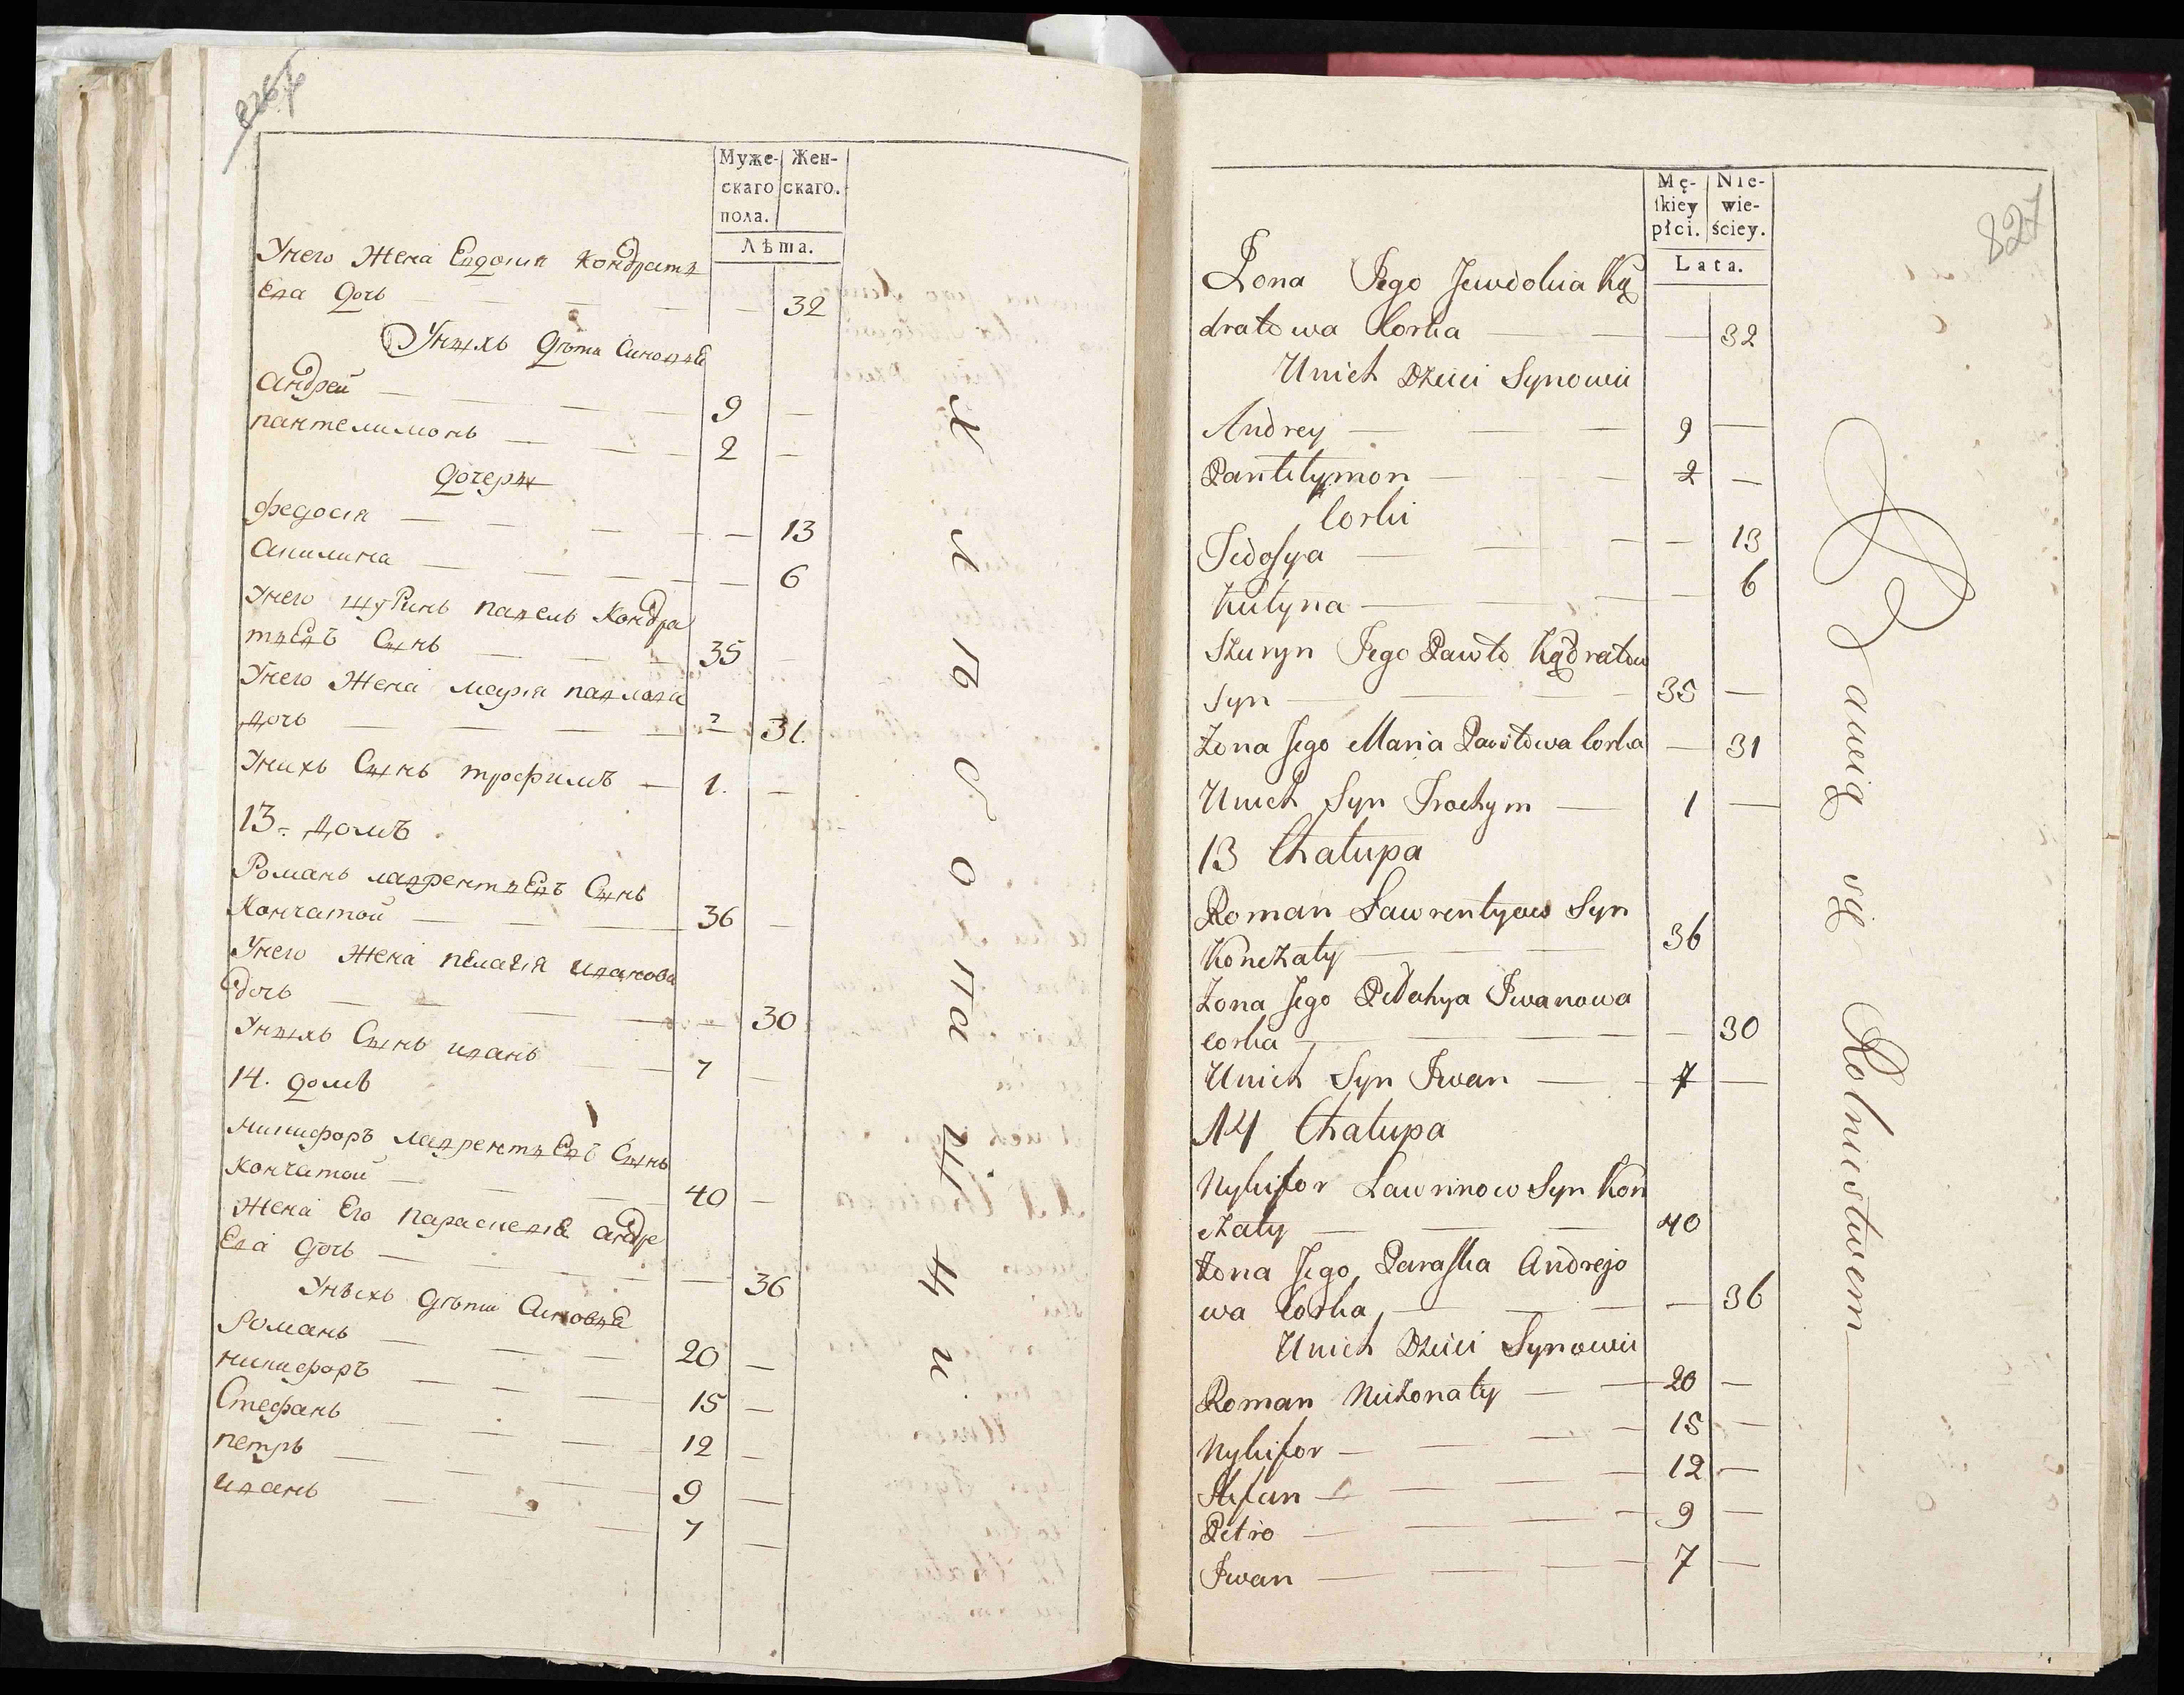 Муже- Жен-
скаго скаго.
пола.
Лѣта.
Унего жена Евдокия Кондрать
Ева дочь — 32
Унихъ дѣти Синовья
Андрей — 9 —
пантелимонъ — 2 —
дочери
федосия — — 13
Акилина — — 6
Унего шуринъ павелъ Кондра
тьевъ Сынъ — 35 —
Унего жена мария павлова
дочь — — 31.
Унихъ Сынъ трофимъ — 1. —
13. домъ
Романъ лаврентьевъ Сынъ
Кончатой — 36 —
Унего жена пелагия иванова
дочь — — 30
Унихъ Сынъ иванъ — 7 —
14. домъ
никифоръ лаврентьевъ Сынъ
Кончатой — 40 —
жена Его параскевия андре
Ева дочь — — 36
Унихъ дѣти Синовья
Романъ — 20 —
никифоръ — 15 —
Стефанъ — 12 —
петръ — 9 —
иванъ — 7 —
Хлѣбопашци
827
Mę- Nie-
ſkiey wie-
płci. ściey.
Lata.
Żona Jego Jewdokia Ką
dratowa Corka — — 32
Unich Dzieci Synowie
Andrey — 9 —
Pantelymon — 2 —
Corki
Fedoſya — — 13
Kulyna — — 6
Szuryn Jego Pawło Kądratow
Syn — 35 —
Żona Jego Maria Pawłowa Corka — 31
Unich Syn Trochym — 1 —
13 Chałupa
Roman Lawrentyow Syn
Konczaty — 36
Żona Jego Pelahya Iwanowa
corka — — 30
Unich Syn Iwan — 7 —
14 Chałupa
Nykifor Lawrinow Syn Kon
czaty — 40
Żona Jego Paraſka Andrejo
wa Corka — — 36
Unich Dzieci Synowie
Roman Nieżonaty — 20 —
Nykifor — 15 —
Stefan — 12 —
Petro — 9 —
Iwan — 7 —
Bawią się Rolnictwem